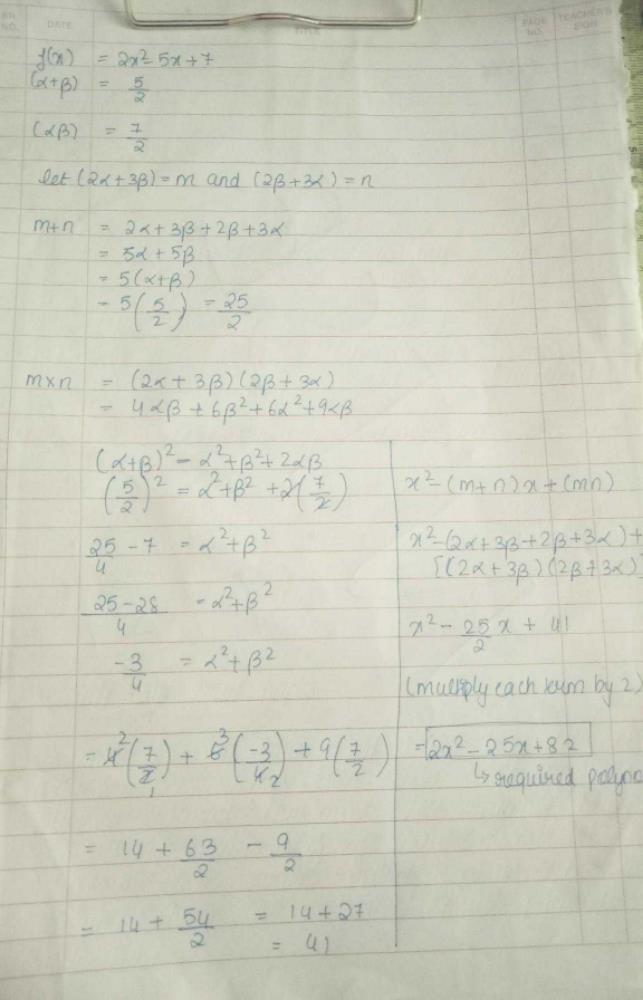 SR. NO. DATE TITLE PAGE NO. TEACHER'S SIGN
f(x) = 2x² - 5x + 7
(α+β) = 5/2
(αβ) = 7/2
let (2α+3β) = m and (2β+3α) = n
m+n = 2α + 3β + 2β + 3α
= 5α + 5β
= 5(α+β)
- 5(5/2) = 25/2
m×n = (2α + 3β)(2β + 3α)
= 4αβ + 6β² + 6α² + 9αβ
(α+β)² - α²+β²+2αβ
(5/2)² = α²+β² + 2(7/2)
25/4 - 7 = α²+β²
25-28/4 - α²+β²
-3/4 = α²+β²
= 4²(7/2₁) + 6³(-3/4₂) + 9(7/2)
= 14 + 63/2 - 9/2
= 14 + 54/2 = 14 + 27
= 41
x² - (m+n)x + (mn)
x² - (2α+3β+2β+3α) +
[(2α+3β)(2β+3α)
x² - 25/2 x + 41
(multiply each term by 2)
= 2x² - 25x + 82
↳ required polyno